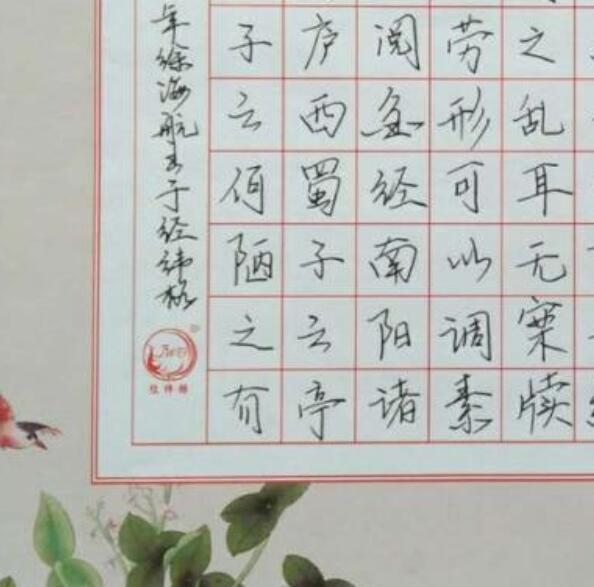 之乱耳无案牍
劳形可以调素
阅金经南阳诸
庐西蜀子云亭
子云何陋之有
年徐海航书于经纬格
经纬格